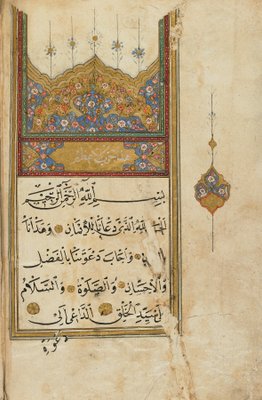 بِسْمِ اللهِ الرَّحْمٰنِ الرَّحِيمِ
الحمد لله الذي دعانا للايمان وهدانا
واجاب دعوتنا بالفضل
والاحسان والصلوة والسلام
على سيد الخلق الداعي الى